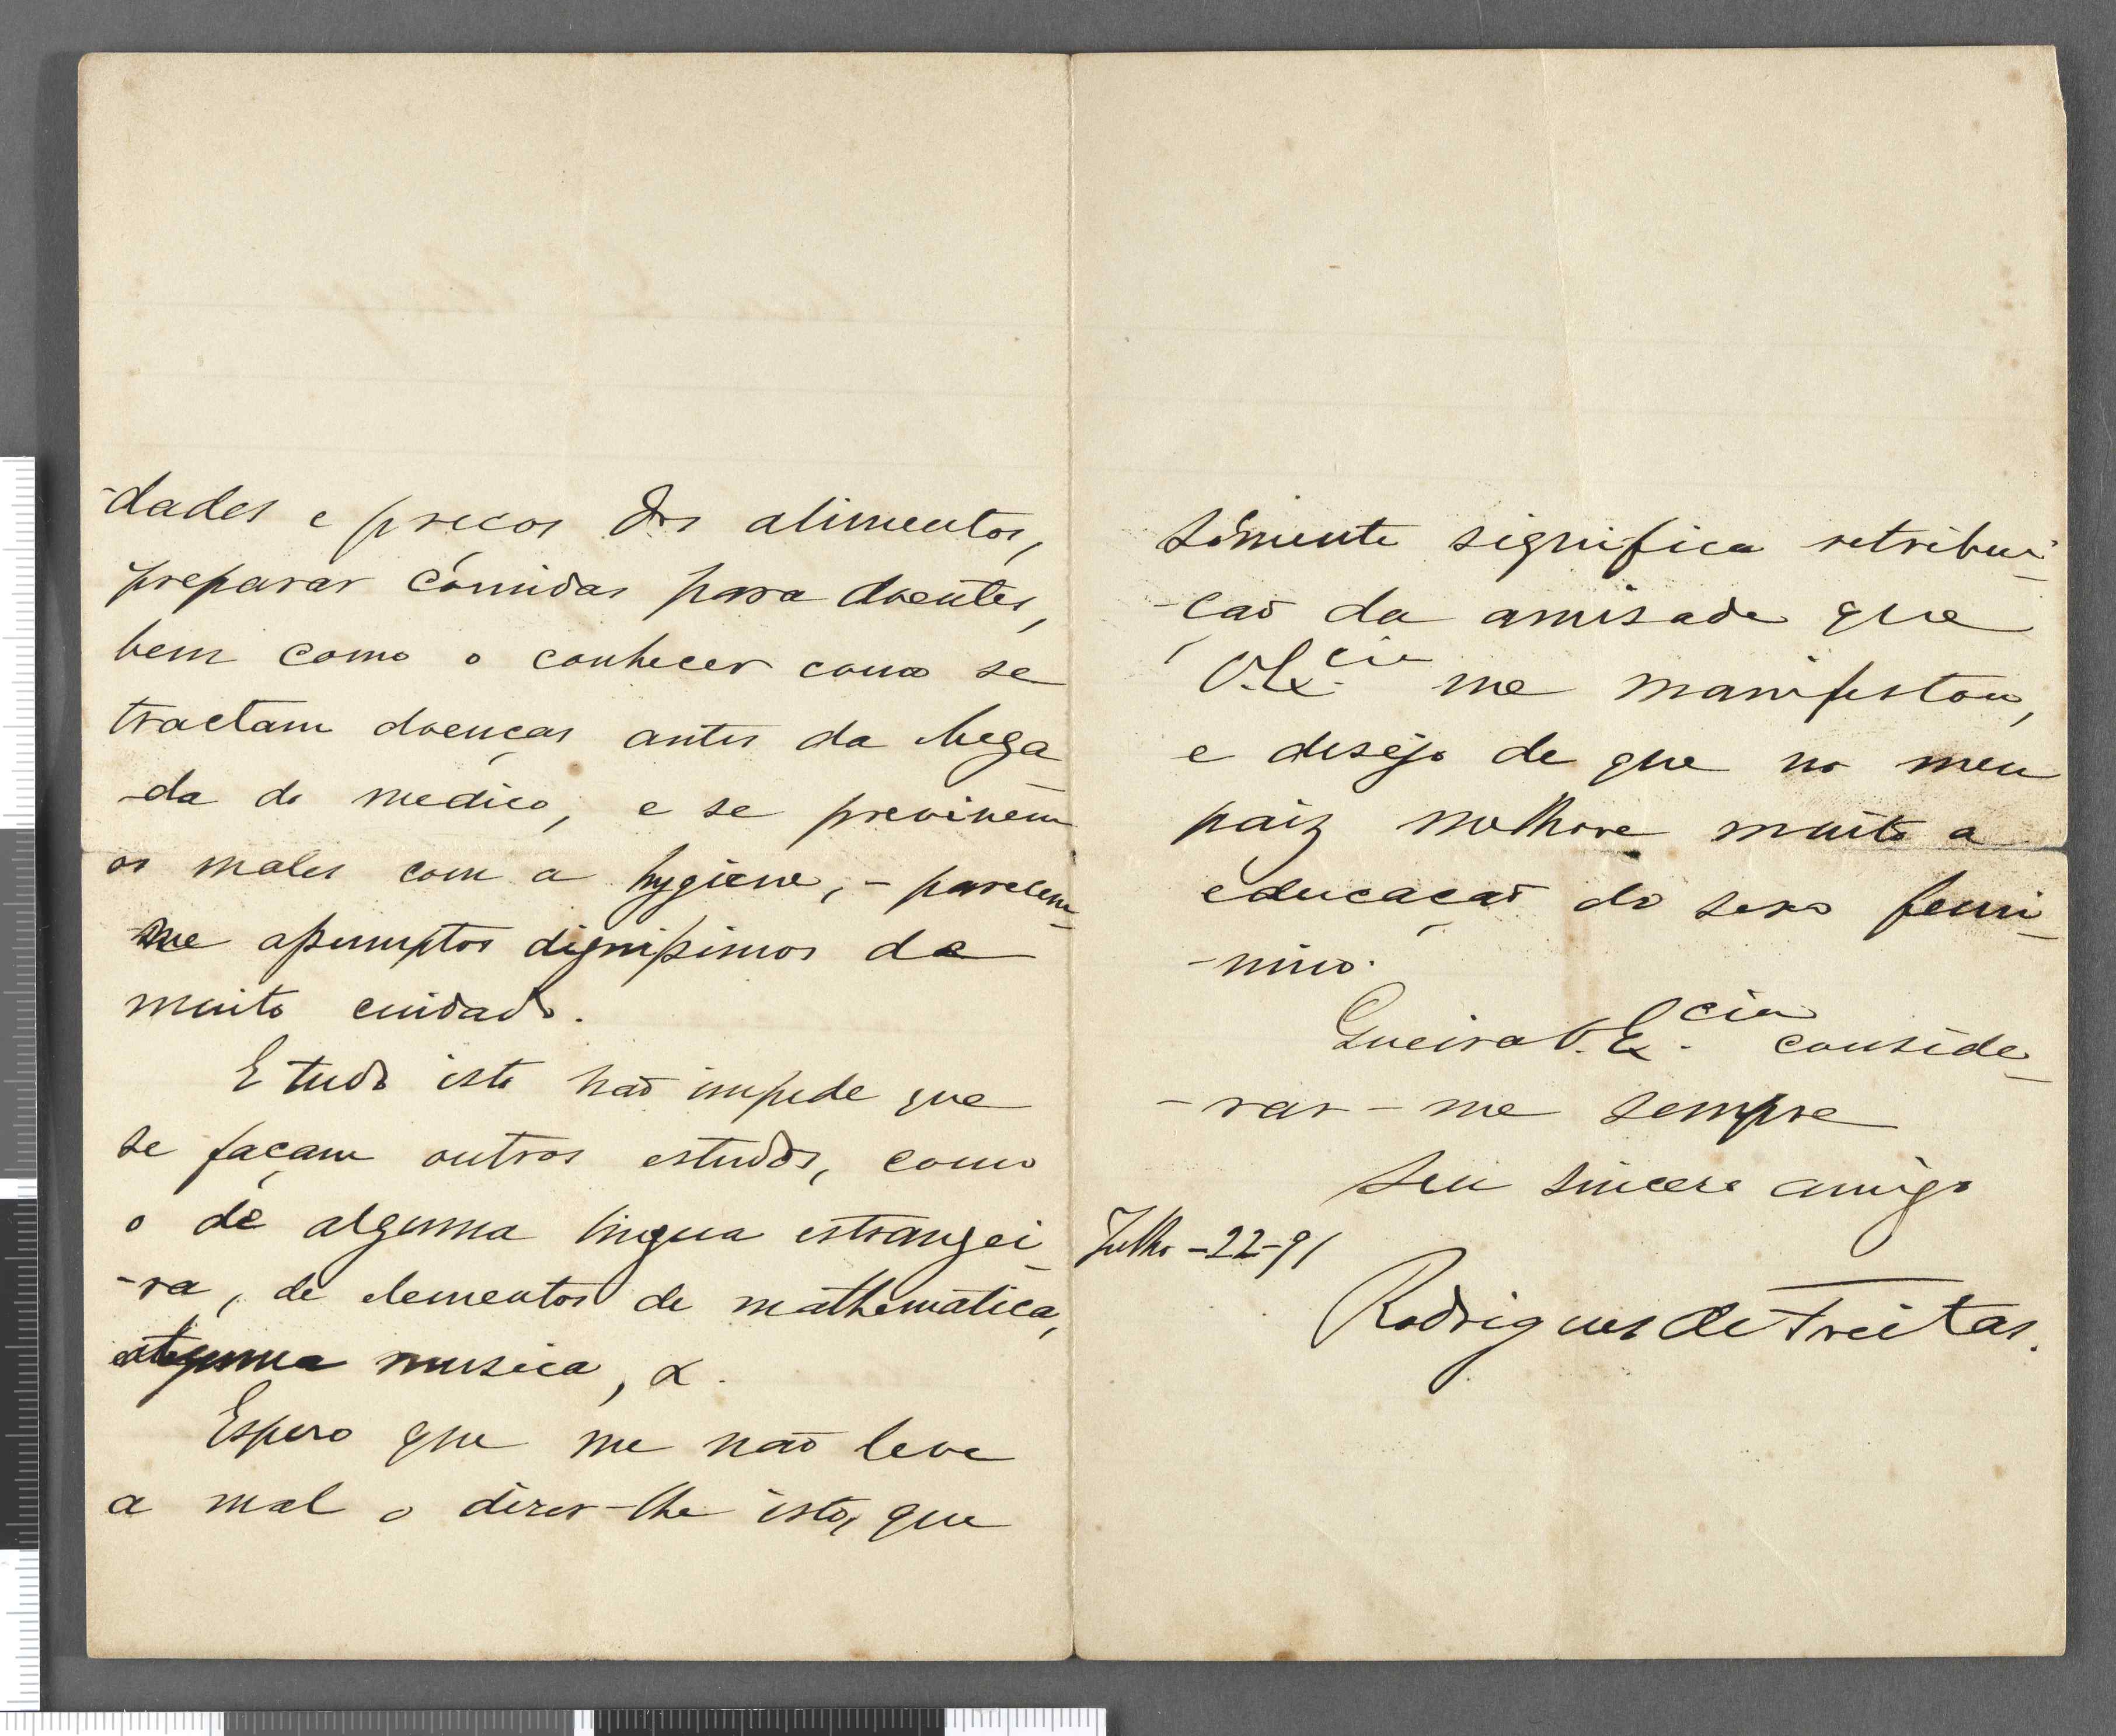 -dades e preços dos alimentos,
preparar cómidas para doentes,
bem como o conhecer como se
tractam doenças antes da chega-
-da do medico, e se previnem
os males com a hygiene, - parecem-
-me assumptos dignissimos de
muito cuidado.
E tudo isto não impede que
se façam outros estudos, como
o de alguma lingua estrangei-
-ra, de elementos de mathematica,
alguma musica, &.
Espero que me não leve
a mal o dizer-lhe isto, que
sómente significa retribui-
-ção da amisade que
V. Ex.cia me manifestou,
e desejo de que no meu
paiz melhore muito a
educação do sexo femi-
-nino.
Queira V. Ex.cia conside-
-rar-me sempre
seu sincero amigo
Julho -22-91
Rodrigues de Freitas.